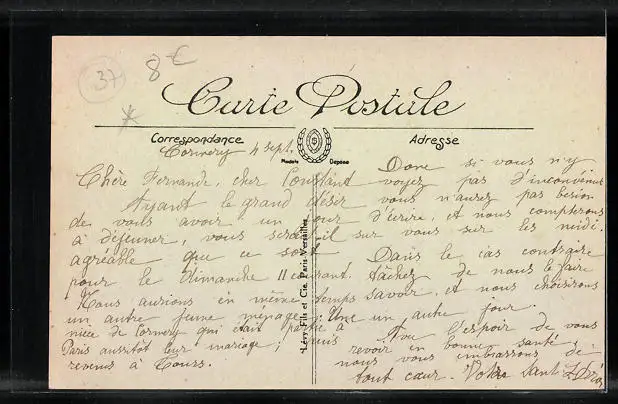 37
8€
Carte Postale
Correspondance
Adresse
Modèle Déposé
Lévy Fils et Cie, Paris-Versailles
Cormery 4 sept.
Chère Fernande, cher Constant
Ayant le grand désir
de vous avoir un jour
à déjeuner, vous serait-il
agréable que ce soit
pour le dimanche 11 courant.
Nous aurions en même temps
un autre jeune ménage; Une
nièce de Cormery qui était partie à
Paris aussitôt leur mariage; puis
revenus à Tours.
Donc si vous n'y
voyez pas d'inconvénient
vous n'aurez pas besoin
d'écrire, et nous compterons
sur vous sur les midi.
Dans le cas contraire
tâchez de nous le faire
savoir, et nous choisirons
un autre jour.
l'espoir de vous
revoir en bonne santé,
nous vous embrassons de
tout cœur. Votre